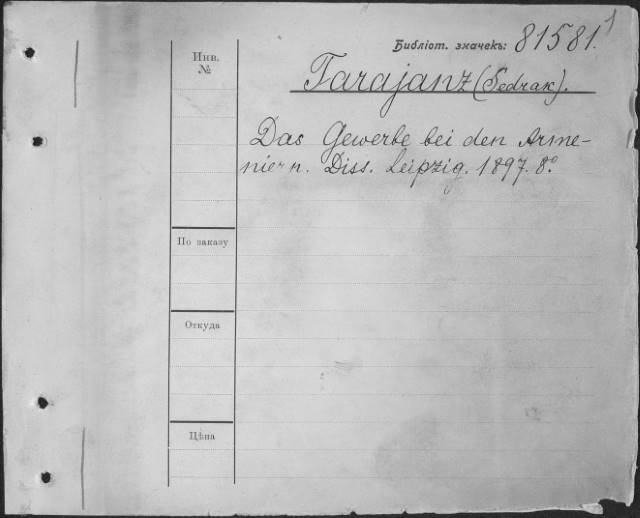 1
Библіот. значекъ: 81581.
Инв. №
Tarajanz (Sedrak).
Das Gewerbe bei den Arme-
niern. Diss. Leipzig. 1897. 8º.
По заказу
Откуда
Цѣна